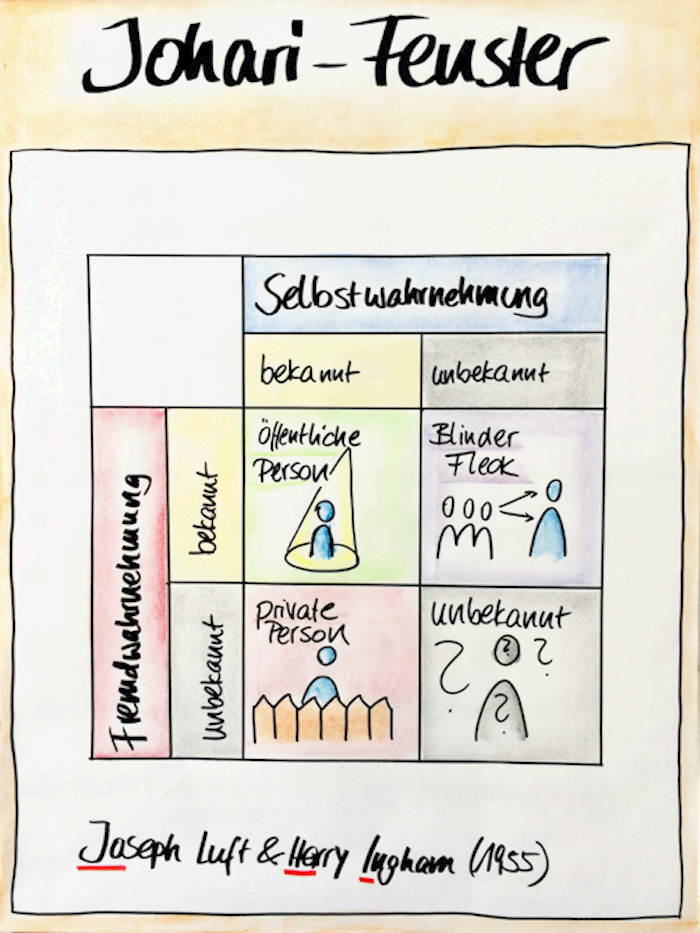 Johari-Fenster
Selbstwahrnehmung
bekannt
unbekannt
Fremdwahrnehmung
bekannt
Öffentliche
Person
Blinder
Fleck
unbekannt
private
Person
unbekannt
?
?
?
?
Joseph Luft & Harry Ingham (1955)